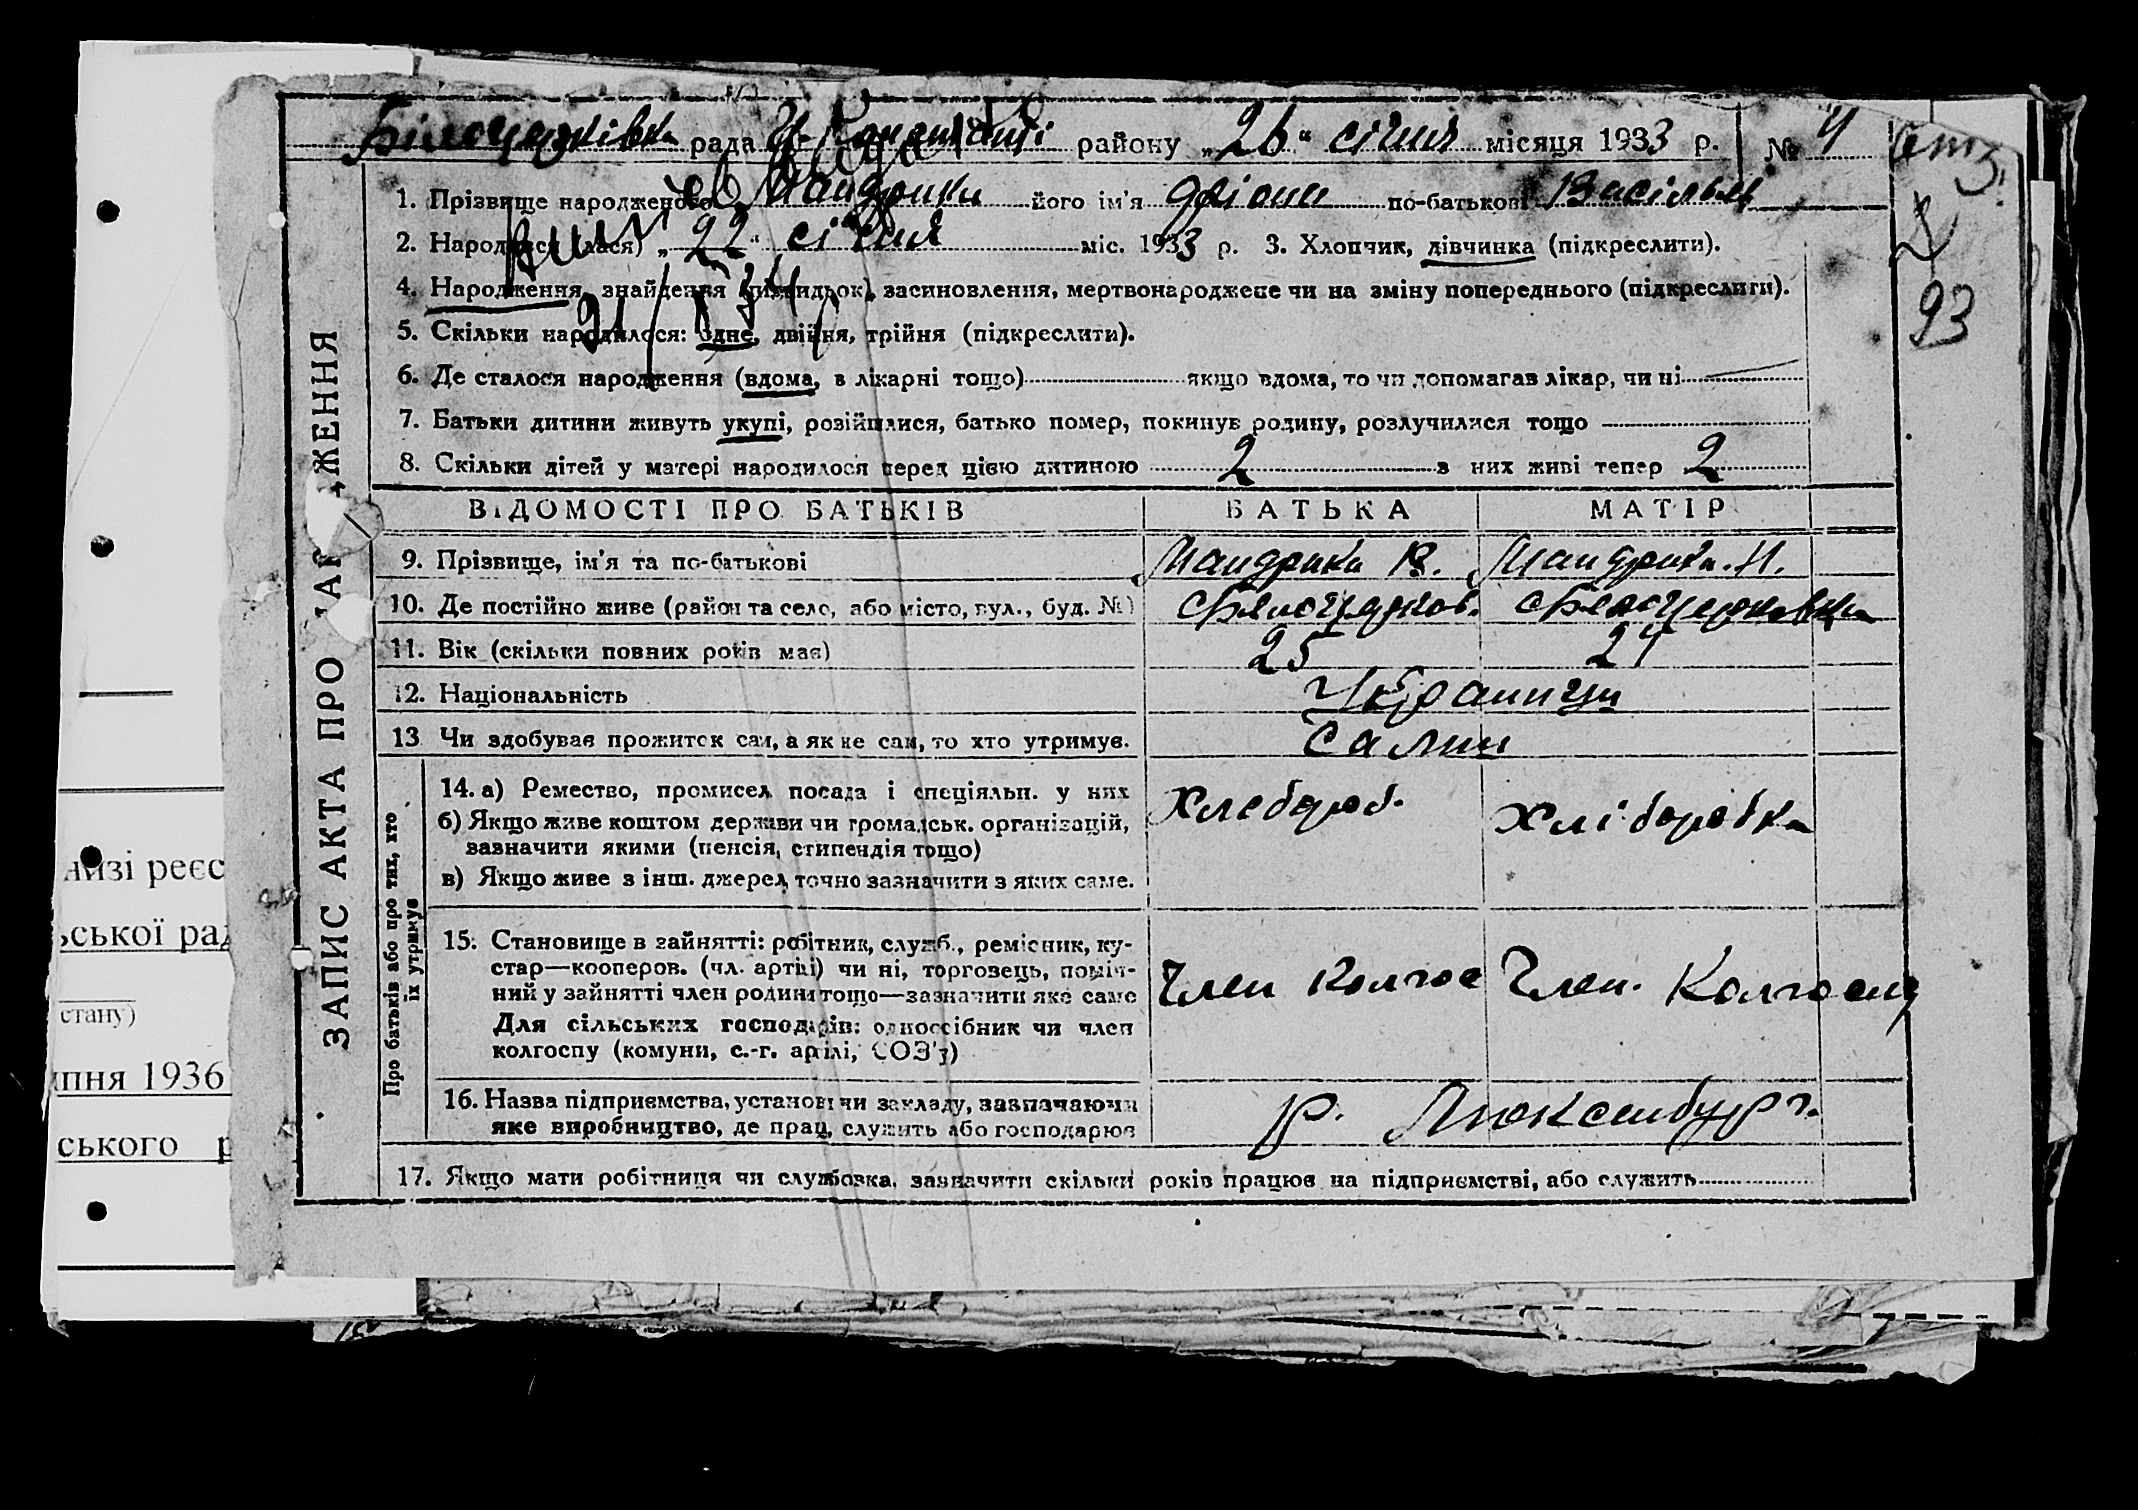 Білоцерківка рада району „26“ січня місяця 1933 р. № 4
1. Прізвище народженого Мандрика його ім'я по-батькові Васільєв
2. Народився (лася) „22“ січня міс. 1933 р. 3. Хлопчик, дівчинка (підкреслити).
4. Народження, знайдення (підкидьок), засиновлення, мертвонароджене чи на зміну попереднього (підкреслити).
5. Скільки народилося: одне, двійня, трійня (підкреслити).
6. Де сталося народження (вдома, в лікарні тощо) якщо вдома, то чи допомагав лікар, чи ні
7. Батьки дитини живуть укупі, розійшлися, батько помер, покинув родину, розлучилися тощо
8. Скільки дітей у матері народилося перед цією дитиною 2 з них живі тепер 2
93
ЗАПИС АКТА ПРО НАРОДЖЕННЯ
ВІДОМОСТІ ПРО БАТЬКІВ БАТЬКА МАТІР
9. Прізвище, ім'я та по-батькові Мандрика В. Мандрика. Н.
10. Де постійно живе (район та село, або місто, вул., буд. №)
11. Вік (скільки повних років має) 25 24
12. Національність Українци
13 Чи здобуває прожиток сам, а як не сам, то хто утримує. Сами
Про батьків або про тих, хто їх утримує
14. а) Ремество, промисел, посада і спеціяльн. у них Хлебороб. Хліборобка
б) Якщо живе коштом держави чи громадськ. організацій,
зазначити якими (пенсія, стипендія тощо)
в) Якщо живе з інш. джерел, точно зазначити з яких саме.
15. Становище в зайнятті: робітник, служб., ремісник, ку-
стар—кооперов. (чл. артілі) чи ні, торговець, поміч-
ний у зайнятті член родини тощо—зазначити яке саме
Член Колгос Член. Колгоспу
Для сільських господарів: одноосібник чи член
колгоспу (комуни, с.-г. артілі, СОЗ'у)
16. Назва підприємства, установи чи закладу, зазначаючи
яке виробництво, де прац, служить або господарює
Р. Люксембург.
17. Якщо мати робітниця чи службовка, зазначити скільки років працює на підприємстві, або служить
низі реєс
ської рад
стану)
пня 1936
ського р